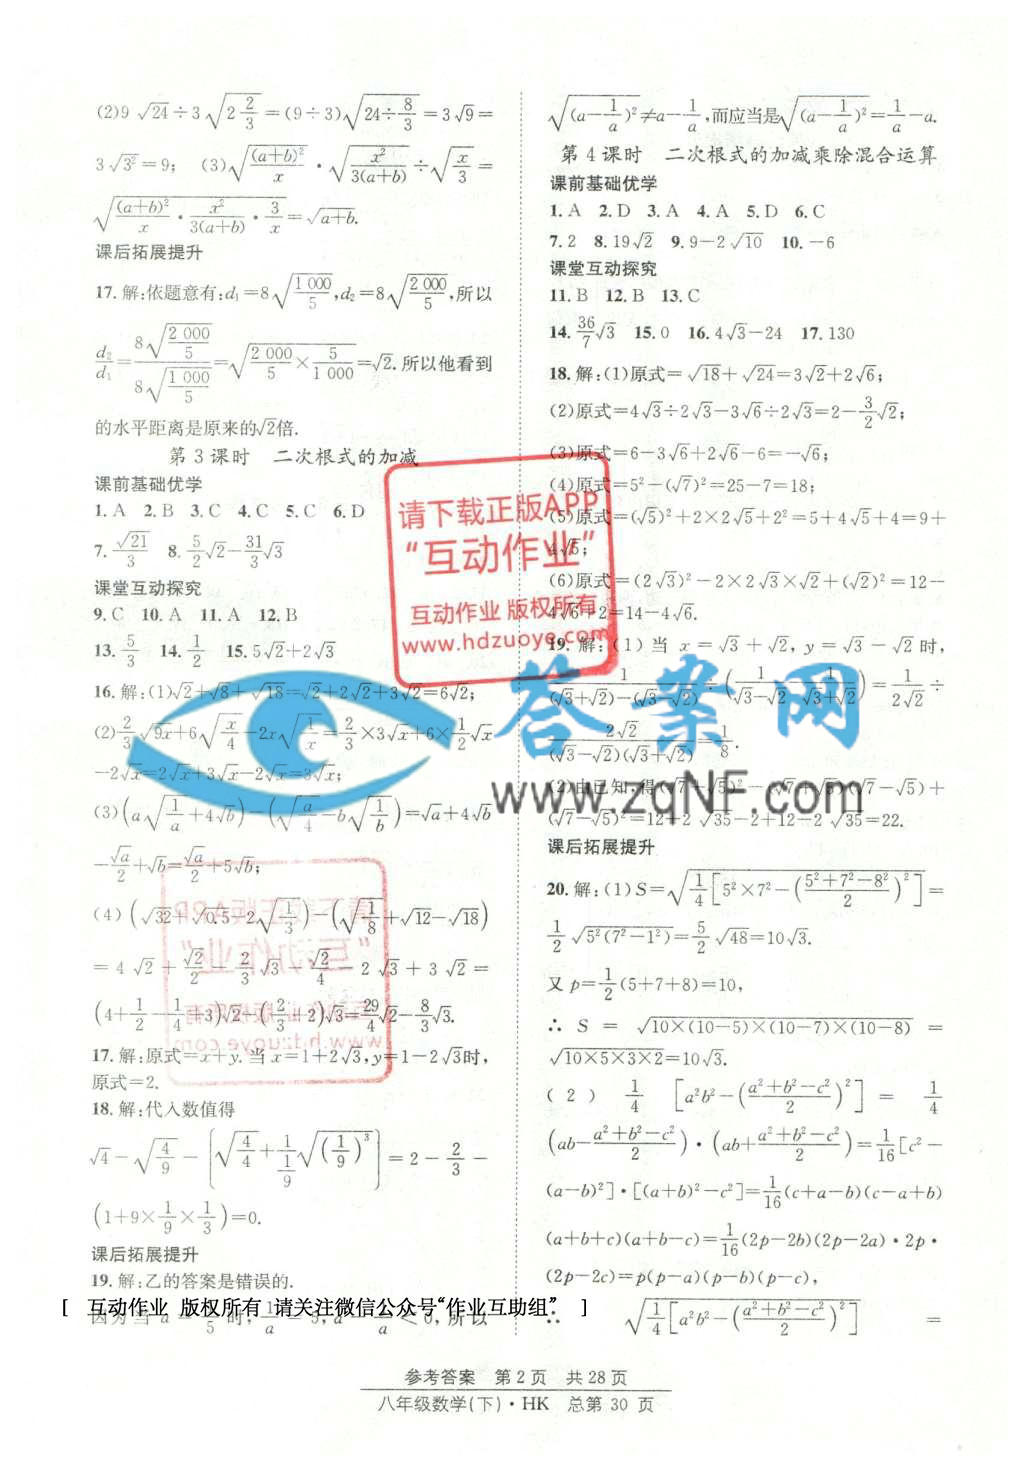 (2)9√24÷3√(2 2/3)=(9÷3)√(24÷8/3)=3√9=
3√3²=9; (3)√((a+b)²/x)·√(x²/3(a+b))÷√(x/3)=
√((a+b)²/x·x²/3(a+b)·3/x)=√(a+b).
课后拓展提升
17.解:依题意有:d₁=8√(1 000/5),d₂=8√(2 000/5),所以
d₂/d₁=8√(2 000/5)/8√(1 000/5)=√(2 000/5×5/1 000)=√2.所以他看到
的水平距离是原来的√2倍.
第3课时 二次根式的加减
课前基础优学
1.A 2.B 3.C 4.C 5.C 6.D
7.√21/3 8.5/2√2-31/3√3
课堂互动探究
9.C 10.A 11.A 12.B
13.5/3 14.1/2 15.5√2+2√3
16.解:(1)√2+√8+√18=√2+2√2+3√2=6√2;
(2)2/3√9x+6√(x/4)-2x√(1/x)=2/3×3√x+6×1/2√x
-2√x=2√x+3√x-2√x=3√x;
(3)(a√(1/a)+4√b)-(√(a/4)-b√(1/b))=√a+4√b
-√a/2+√b=√a/2+5√b;
(4)(√32+√0.5-2√(1/3))-(√(1/8)+√12-√18)
=4√2+√2/2-2/3√3-√2/4-2√3+3√2=
(4+1/2-1/4+3)√2-(2/3+2)√3=29/4√2-8/3√3.
17.解:原式=x+y.当x=1+2√3,y=1-2√3时,
原式=2.
18.解:代入数值得
√4-√(4/9)-[√(4/4)+1/(1/9)√((1/9)³)]=2-2/3-
(1+9×1/9×1/3)=0.
课后拓展提升
19.解:乙的答案是错误的.
[ 互动作业 版权所有 请关注微信公众号“作业互助组” ]
√((a-1/a)²)≠a-1/a,而应当是√((a-1/a)²)=1/a-a.
第4课时 二次根式的加减乘除混合运算
课前基础优学
1.A 2.D 3.A 4.A 5.D 6.C
7.2 8.19√2 9.9-2√10 10.-6
课堂互动探究
11.B 12.B 13.C
14.36/7√3 15.0 16.4√3-24 17.130
18.解:(1)原式=√18+√24=3√2+2√6;
(2)原式=4√3÷2√3-3√6÷2√3=2-3/2√2;
(3)原式=6-3√6+2√6-6=-√6;
(4)原式=5²-(√7)²=25-7=18;
(5)原式=(√5)²+2×2√5+2²=5+4√5+4=9+
4√5;
(6)原式=(2√3)²-2×2√3×√2+(√2)²=12-
4√6+2=14-4√6.
19.解:(1)当x=√3+√2,y=√3-√2时,
1/((√3+√2)-(√3-√2))÷(1/(√3-√2)-1/(√3+√2))=1/2√2÷
2√2/((√3-√2)(√3+√2))=1/8.
(2)由已知,得(√7+√5)²-(√7+√5)(√7-√5)+
(√7-√5)²=12+2√35-2+12-2√35=22.
课后拓展提升
20.解:(1)S=√(1/4[5²×7²-((5²+7²-8²)/2)²])=
1/2√(5²(7²-1²))=5/2√48=10√3.
又p=1/2(5+7+8)=10,
∴S=√(10×(10-5)×(10-7)×(10-8))=
√(10×5×3×2)=10√3.
(2)1/4[a²b²-((a²+b²-c²)/2)²]=1/4
(ab-(a²+b²-c²)/2)·(ab+(a²+b²-c²)/2)=1/16[c²-
(a-b)²]·[(a+b)²-c²]=1/16(c+a-b)(c-a+b)
(a+b+c)(a+b-c)=1/16(2p-2b)(2p-2a)·2p·
(2p-2c)=p(p-a)(p-b)(p-c);
∴√(1/4[a²b²-((a²+b²-c²)/2)²])=
请下载正版APP
“互动作业”
互动作业 版权所有
www.hdzuoye.com
答案网
www.zqNF.com
参考答案 第2页 共28页
八年级数学(下)·HK 总第30页